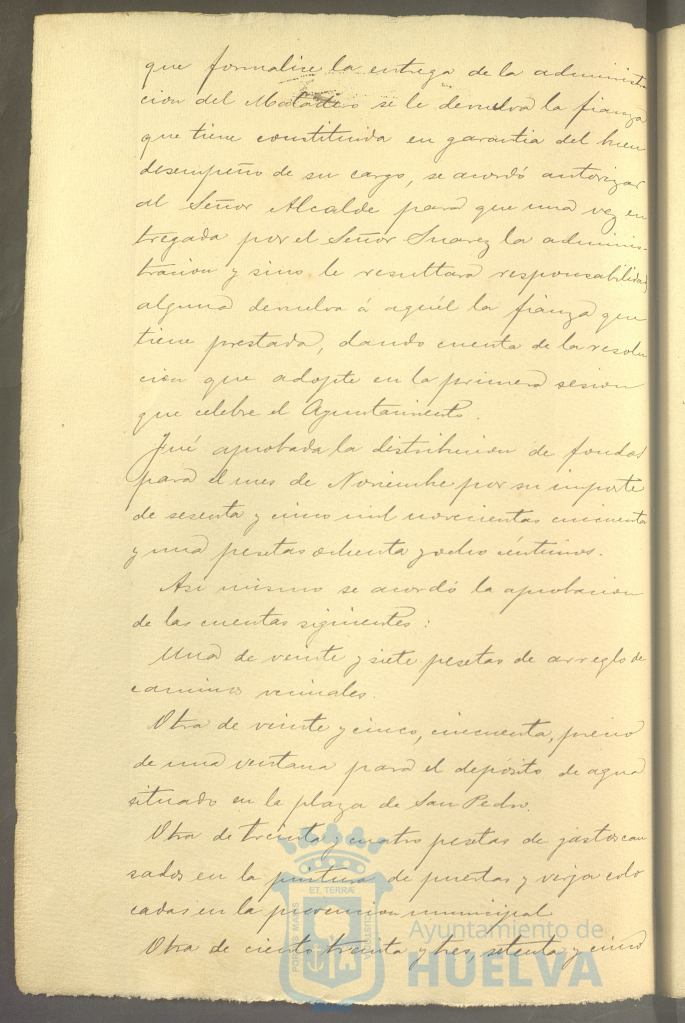 que formalice la entrega de la administra
cion del Matadero se le devuelva la fianza
que tiene constituida en garantia del buen
desempeño de su cargo, se acordó autorizar
al Señor Alcalde para que una vez en
tregada por el Señor Suarez la adminis-
tracion y sino le resultara responsabilidad
alguna devuelva á aquél la fianza que
tiene prestada, dando cuenta de la resolu
cion que adopte en la primera sesion
que celebre el Ayuntamiento.
Fué aprobada la distribucion de fondos
para el mes de Noviembre por su importe
de sesenta y cinco mil novecientas cincuenta
y una pesetas ochenta y ocho céntimos.
Asi mismo se acordó la aprobacion
de las cuentas siguientes:
Una de veinte y siete pesetas de arreglo de
caminos vecinales.
Otra de veinte y cinco, cincuenta, precio
de una ventana para el depósito de agua
situado en la plaza de San Pedro.
Otra de treinta y cuatro pesetas de gastos cau
sados en la pintura de puertas y verja colo
cadas en la prevencion municipal
Otra de ciento treinta y tres, setenta y cinco
ET TERRÆ
PORTUS MARIS
CUSTODIA
Ayuntamiento de
HUELVA